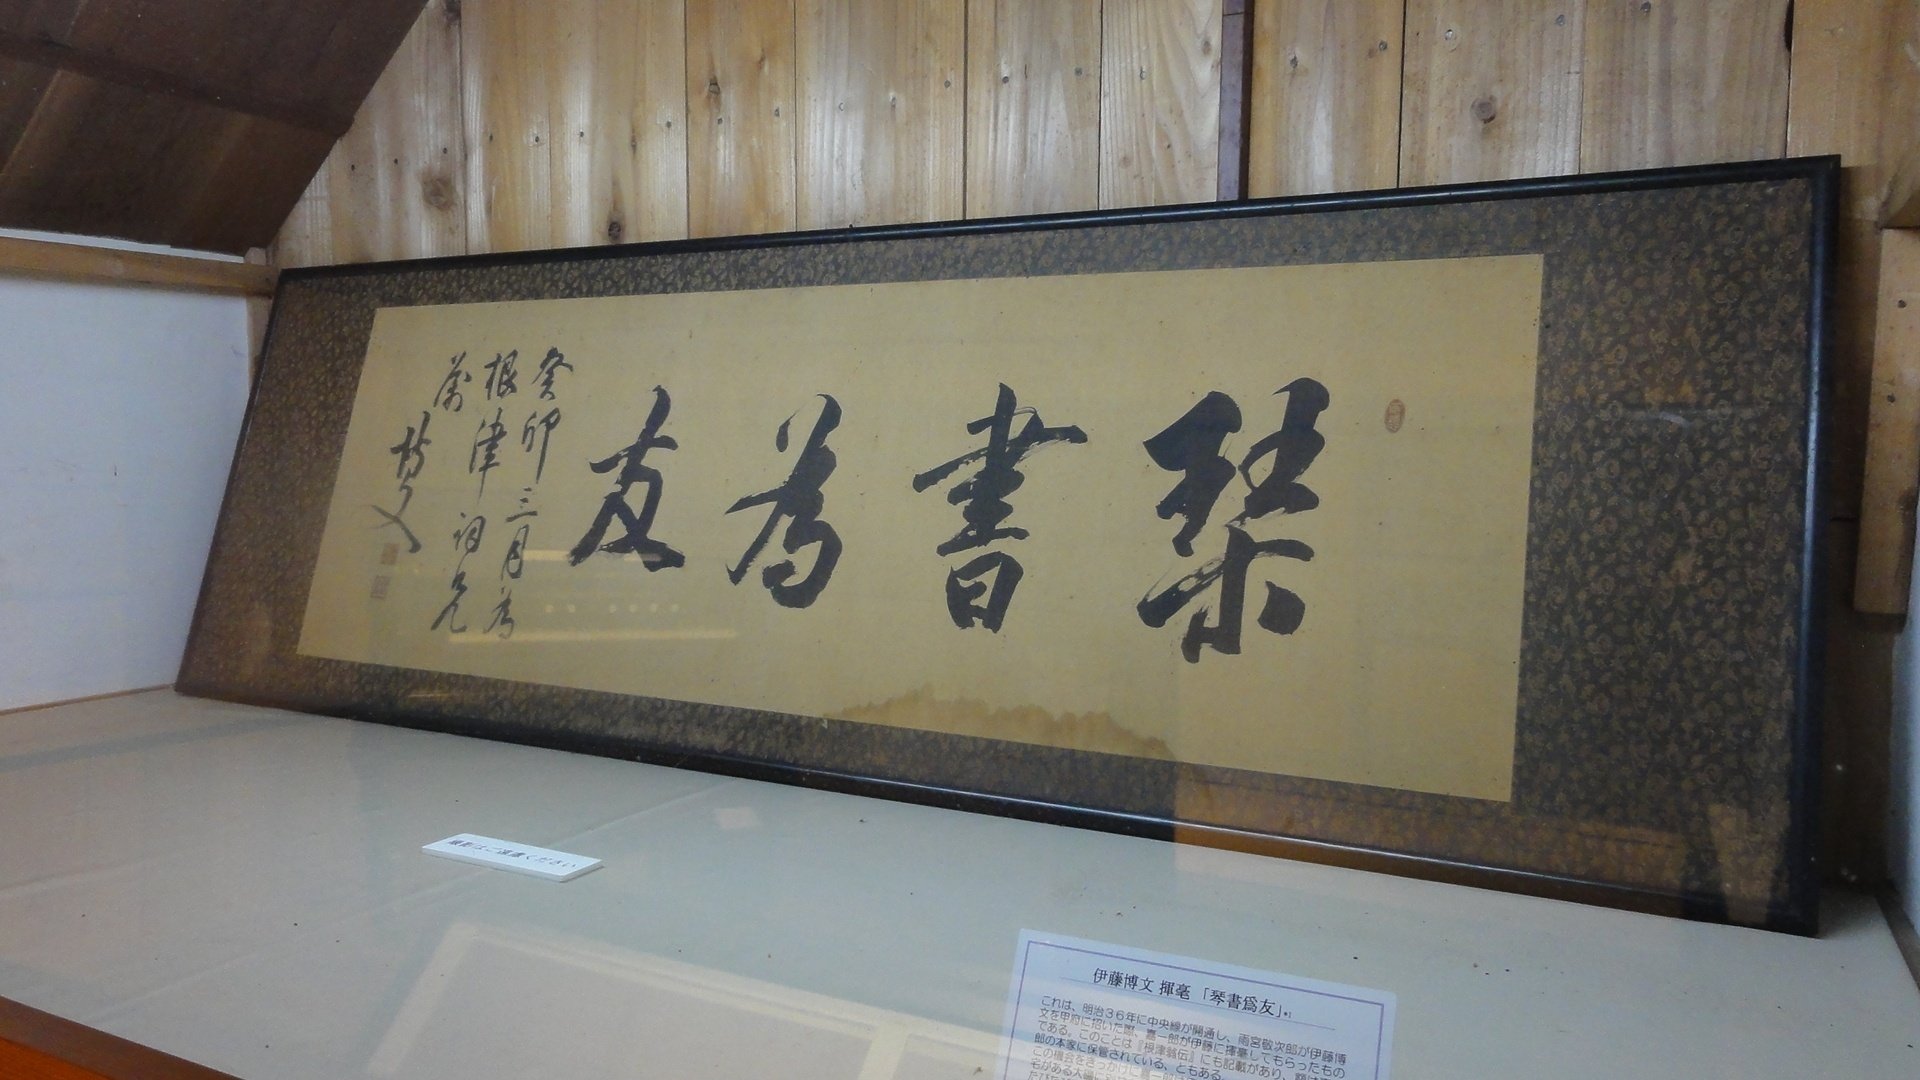 琴書為友
癸卯三月為
根津詞兄
博文
撮影はご遠慮ください
伊藤博文 揮毫 「琴書爲友」*1
これは、明治３６年に中央線が開通し、雨宮敬次郎が伊藤博
文を甲府に招いた際、嘉一郎が伊藤に揮毫してもらったもの
である。このことは『根津翁伝』にも記載があり、額は
郎の本家に保管されている、ともある。
この機会をきっかけに嘉一郎
宅がある大磯に